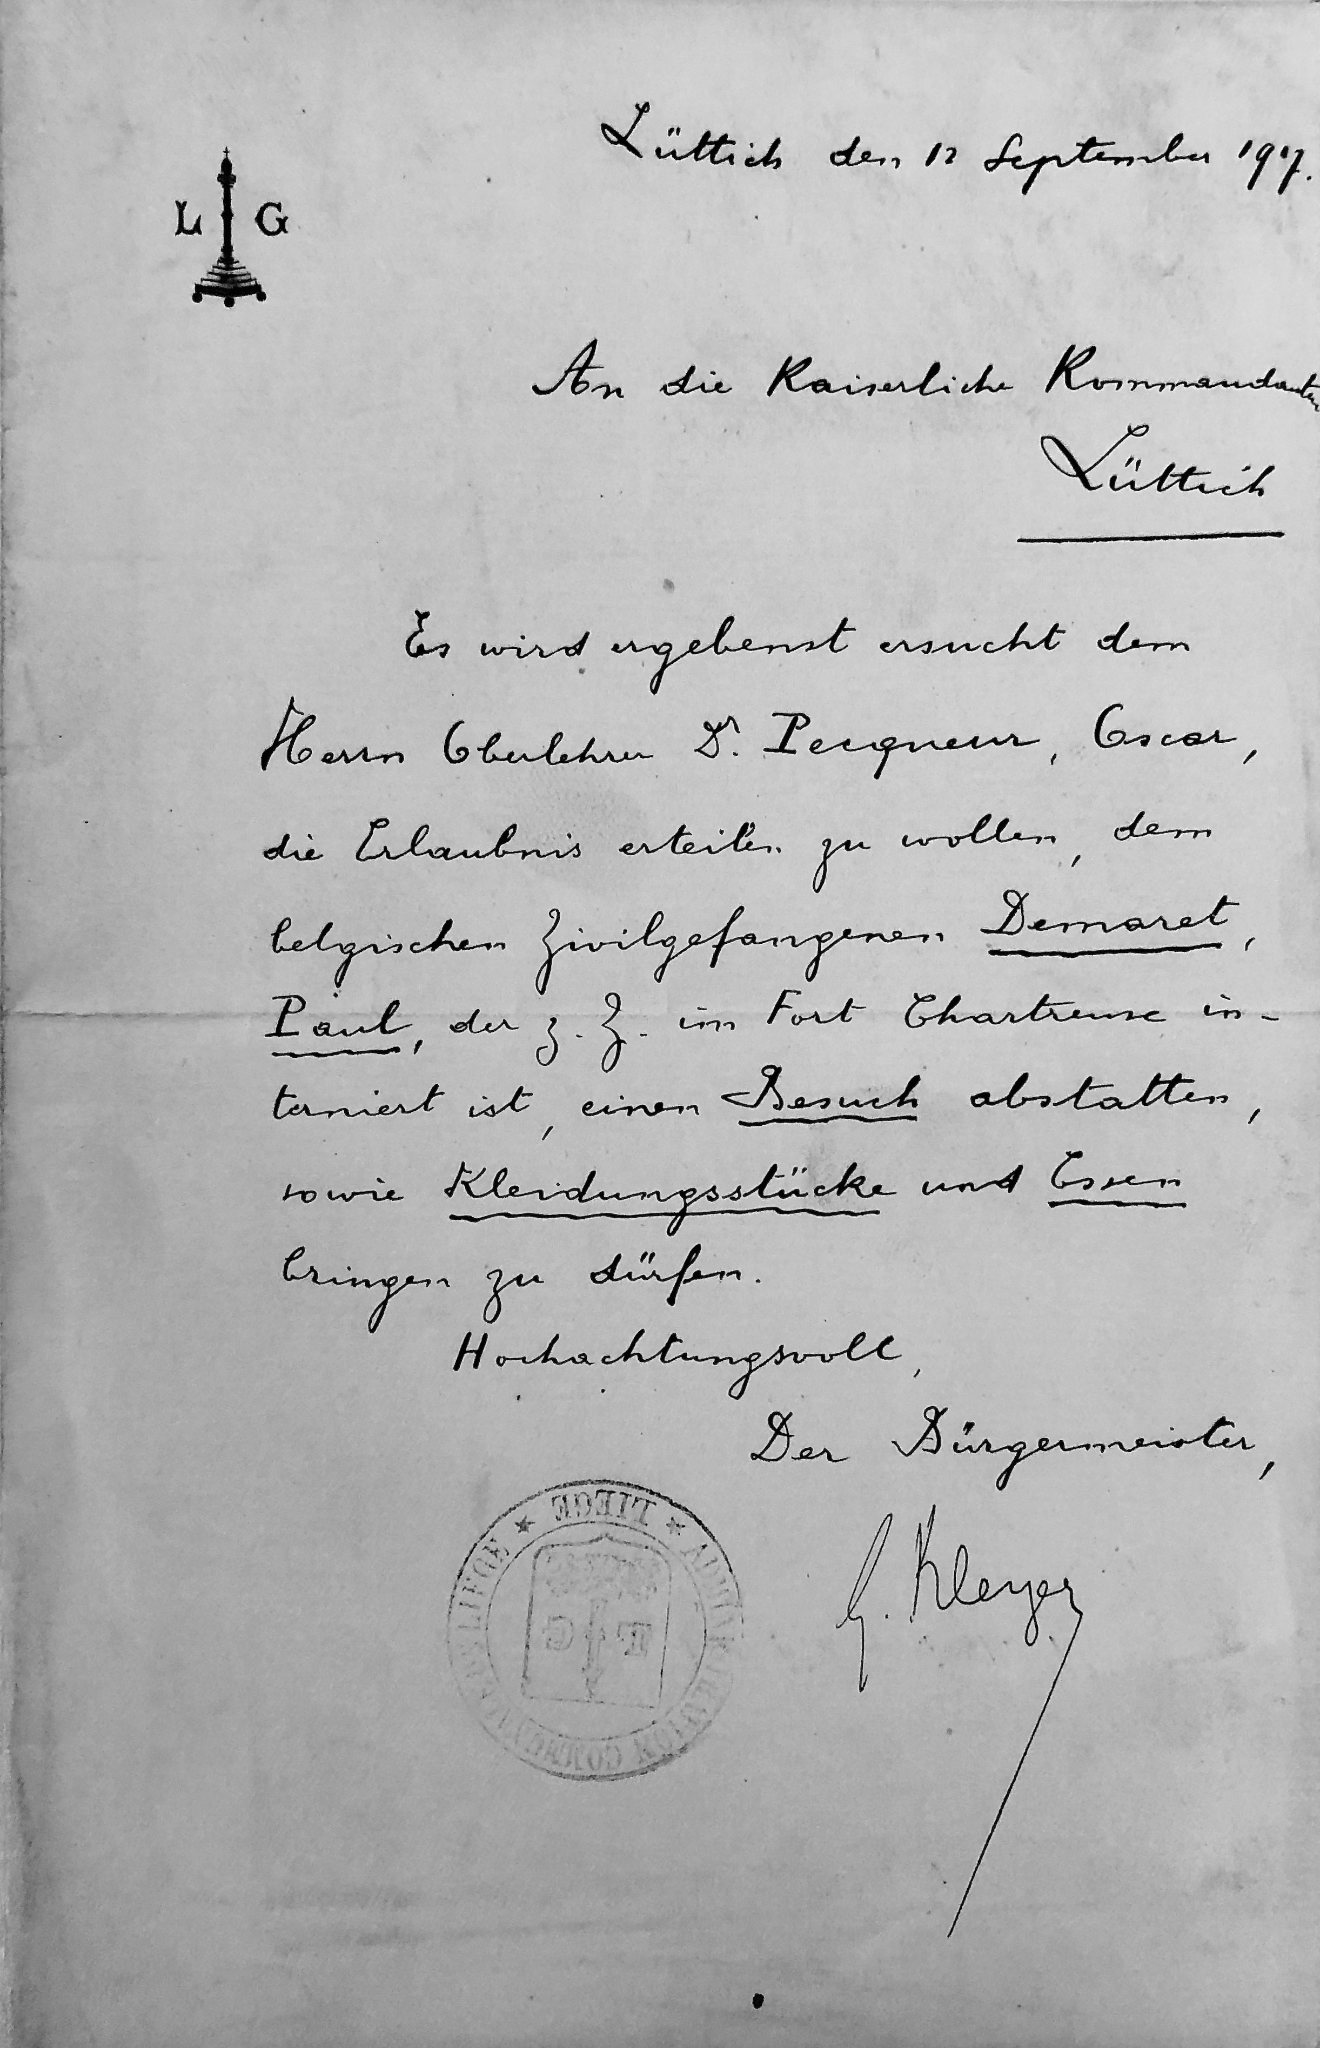 Lüttich den 12 September 1917.
L G
An die Kaiserliche Kommandantur
Lüttich
Es wird ergebenst ersucht dem
Herrn Oberlehrer Dr. Pecqueur, Oscar,
die Erlaubnis erteilen zu wollen, dem
belgischen Zivilgefangenen Demaret,
Paul, der z. Z. im Fort Chartreuse in-
terniert ist, einen Besuch abstatten,
sowie Kleidungsstücke und Essen
bringen zu dürfen.
Hochachtungsvoll,
Der Bürgermeister,
G. Kleyer
★ LIEGE ★ ADMINISTRATION COMMUNALE LIEGE
L G